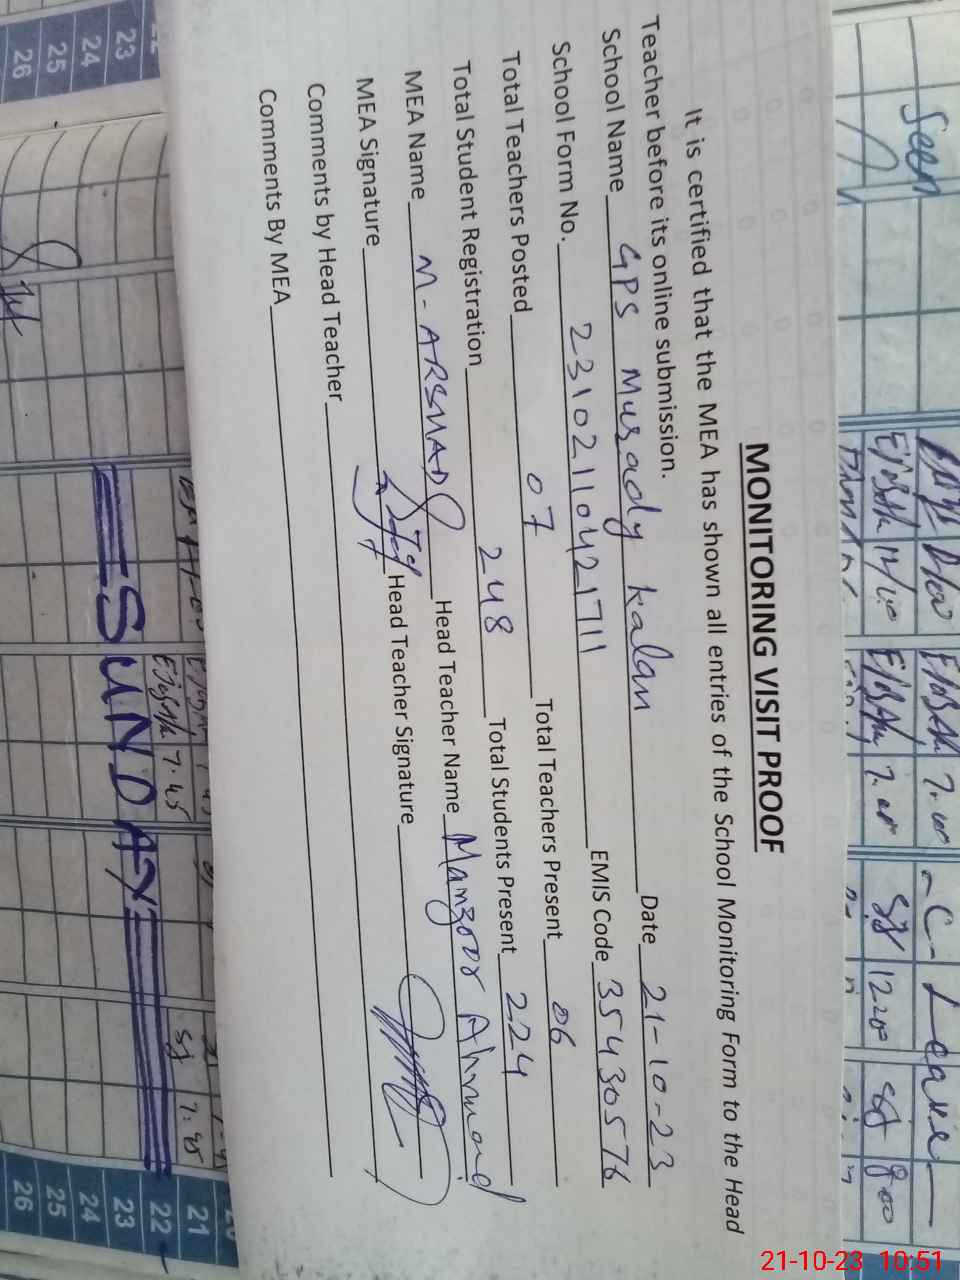 MONITORING VISIT PROOF
It is certified that the MEA has shown all entries of the School Monitoring Form to the Head
Teacher before its online submission.
School Name GPS Musady kalan Date 21-10-23
School Form No. 23102110421711 EMIS Code 35430576
Total Teachers Posted 07 Total Teachers Present 06
Total Student Registration 248 Total Students Present 224
MEA Name M-ARSHAD Head Teacher Name Manzoor Ahmad
MEA Signature Head Teacher Signature
Comments by Head Teacher
Comments By MEA
Seen
-C- Leave-
7.00
12.20
8.00
7.45
7.45
SUNDAY
21
22
23
24
25
26
23
24
25
26
21-10-23 10:51